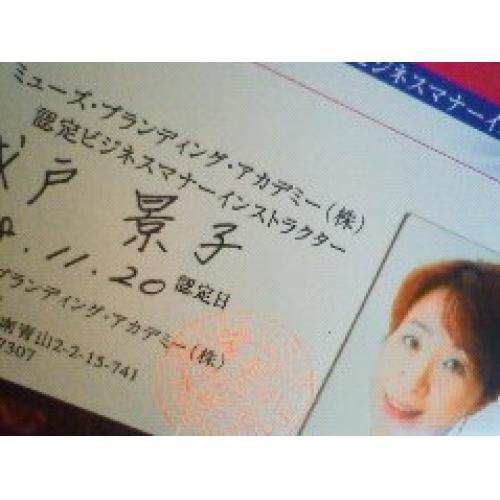 ビジネスマナーイ
ミューズ・ブランディング・アカデミー(株)
認定ビジネスマナーインストラクター
戸 景子
.11.20 認定日
ブランディング・アカデミー(株)
青山2-2-15-741
7307